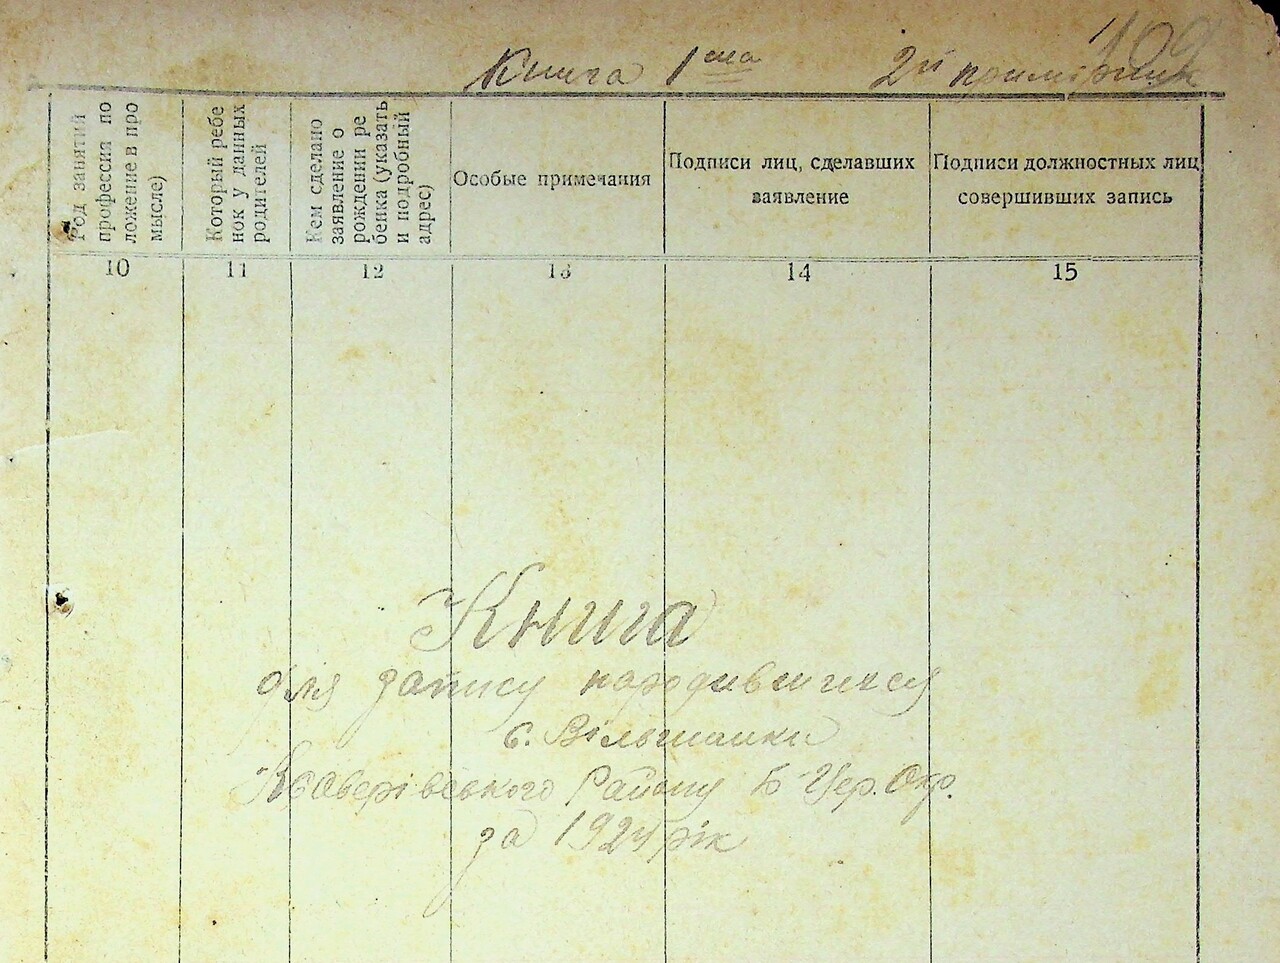 109
Книга 1ша 2й примірник
Род занятий
профессия по
ложение в про
мысле)
Который ребе
нок у данных
родителей
Кем сделано
заявление о
рождении ре
бенка (указать
и подробный
адрес)
Особые примечания
Подписи лиц, сделавших
заявление
Подписи должностных лиц
совершивших запись
10 11 12 13 14 15
Книга
для запису народившихся
с. Вільшанки
Ксаверівського Району Б-Цер. Окр.
за 1924 рік